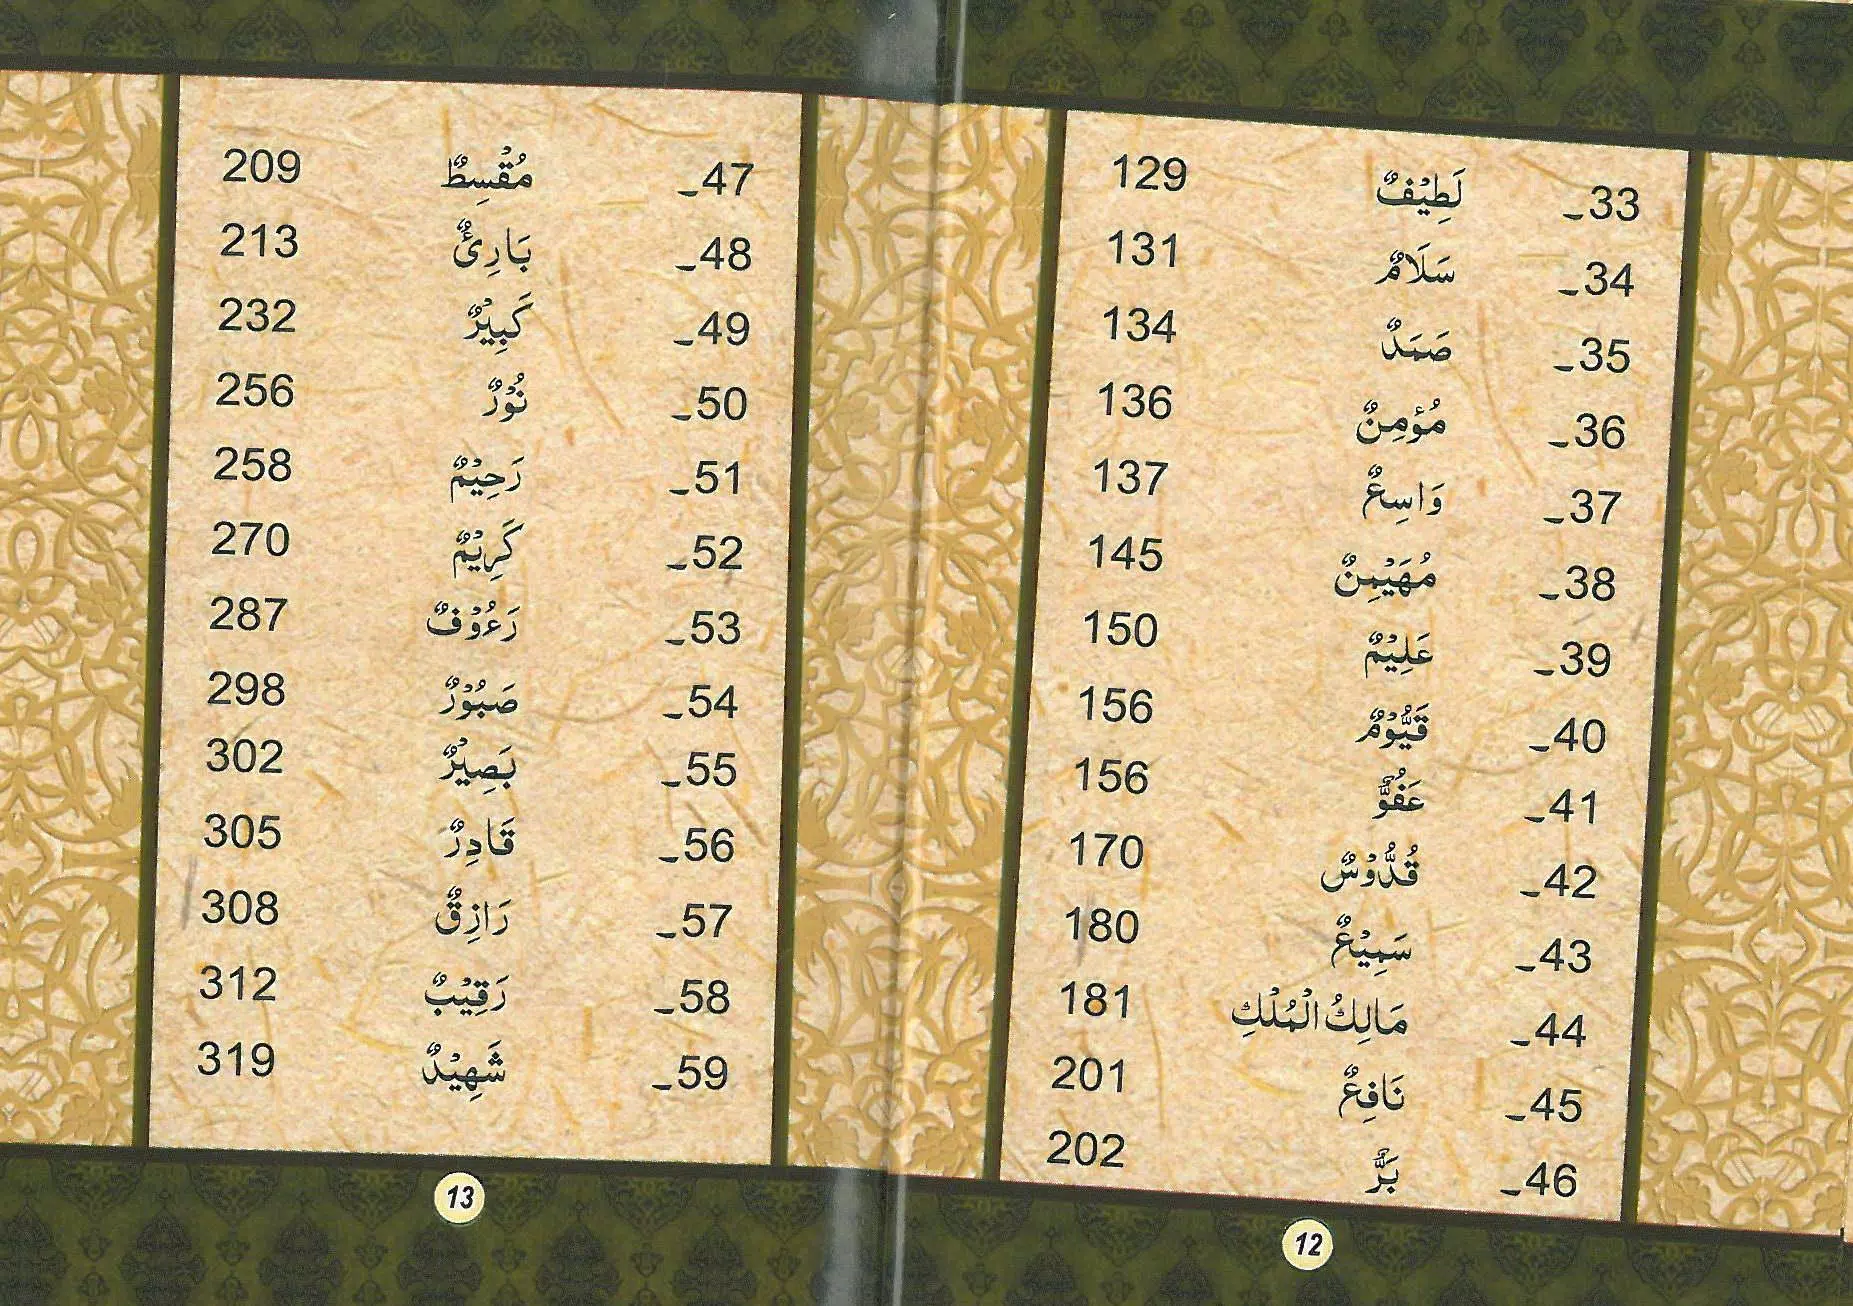 33ـ لَطِيْفٌ 129
34ـ سَلَامٌ 131
35ـ صَمَدٌ 134
36ـ مُؤْمِنٌ 136
37ـ وَاسِعٌ 137
38ـ مُهَيْمِنٌ 145
39ـ عَلِيْمٌ 150
40ـ قَيُّوْمٌ 156
41ـ عَفُوٌّ 156
42ـ قُدُّوْسٌ 170
43ـ سَمِيْعٌ 180
44ـ مَالِكُ الْمُلْكِ 181
45ـ نَافِعٌ 201
46ـ بَرٌّ 202
12
47ـ مُقْسِطٌ 209
48ـ بَارِئٌ 213
49ـ كَبِيْرٌ 232
50ـ نُوْرٌ 256
51ـ رَحِيْمٌ 258
52ـ كَرِيْمٌ 270
53ـ رَءُوْفٌ 287
54ـ صَبُوْرٌ 298
55ـ بَصِيْرٌ 302
56ـ قَادِرٌ 305
57ـ رَازِقٌ 308
58ـ رَقِيْبٌ 312
59ـ شَهِيْدٌ 319
13